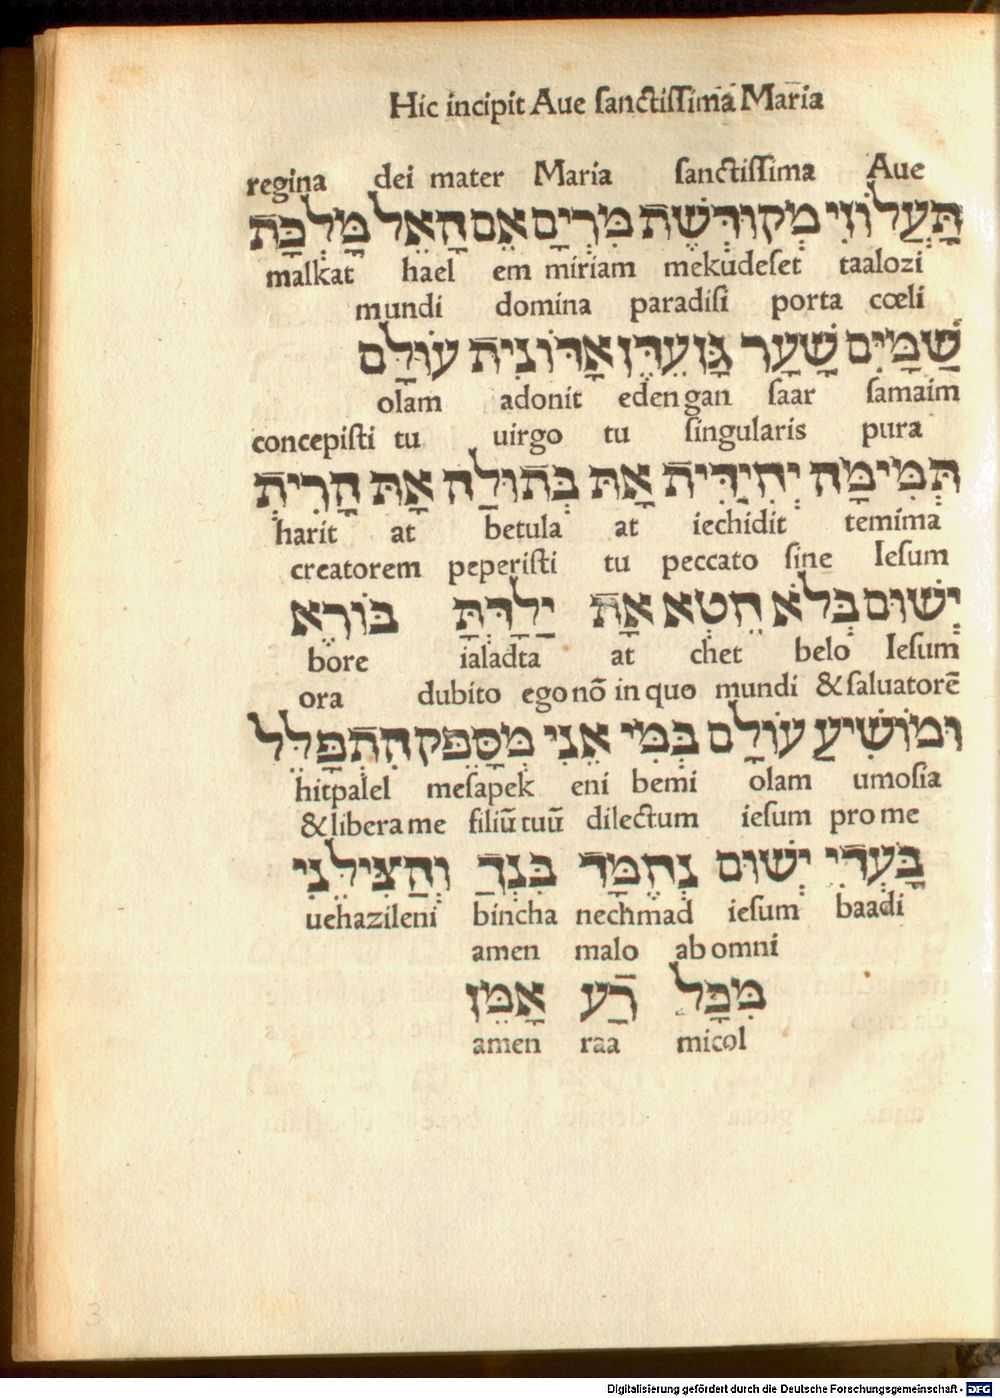 Hic incipit Aue sanctissima Maria
regina dei mater Maria sanctissima Aue
תַּעְלוֹזִי מְקוּדֶּשֶׁת מִרְיָם אֵם הָאֵל מַלְכַּת
malkat hael em miriam mekudeset taalozi
mundi domina paradisi porta cœli
שַׁמָּיִם שָׁעַר גַּן עֵדֶן אֲדוֹנִית עוֹלָם
olam adonit eden gan saar samaim
concepisti tu uirgo tu singularis pura
תְּמִימָה יְחִידִּית אָתּ בְּתוּלָה אָתּ הָרִית
harit at betula at iechidit temima
creatorem peperisti tu peccato sine Iesum
יְשׁוּם בְּלֹא חֵטְא אָתּ יָלַדְתָּ בּוֹרֵא
bore ialadta at chet belo Iesum
ora dubito ego nō in quo mundi & saluatorē
וּמוֹשִׁיעַ עוֹלָם בְּמִי אֵנִי מְסַפֵּק הִתְפַּלֵּל
hitpalel mesapek eni bemi olam umosia
& libera me filiū tuū dilectum iesum pro me
בָּעֲדִי יְשׁוּם נֶחְמָד בִּנְךָ וְהַצִּילֵנִי
uehazileni bincha nechmad iesum baadi
amen malo ab omni
מִכָּל רַע אָמֵן
amen raa micol
3
Digitalisierung gefördert durch die Deutsche Forschungsgemeinschaft - DFG